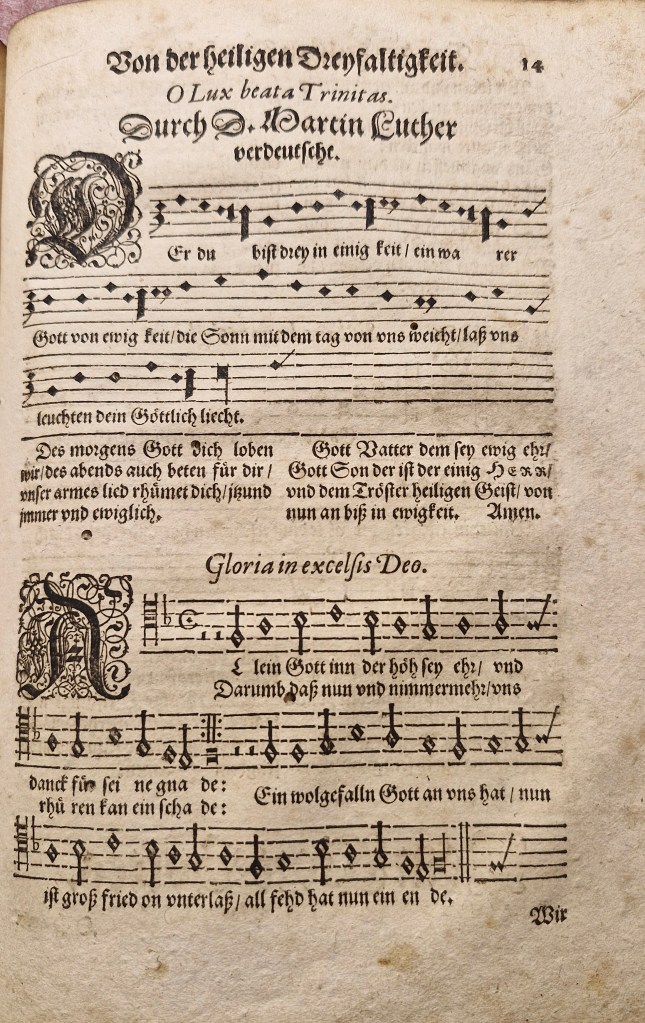 Von der heiligen Dreyfaltigkeit. 14
O Lux beata Trinitas.
Durch D. Martin Luther
verdeutscht.
DEr du bist drey in einig keit / ein wa rer
Gott von ewig keit / die Sonn mit dem tag von vns weicht / laß vns
leuchten dein Göttlich liecht.
Des morgens Gott dich loben
wir / des abends auch beten für dir /
vnser armes lied rhümet dich / jtzund
jmmer vnd ewiglich.
Gott Vatter dem sey ewig ehr /
Gott Son der ist der einig HERR /
vnd dem Tröster heiligen Geist / von
nun an biß in ewigkeit. Amen.
Gloria in excelsis Deo.
ALlein Gott inn der höh sey ehr / vnd
Darumb daß nun vnd nimmermehr / vns
danck für sei ne gna de:
rhü ren kan ein scha de:
Ein wolgefalln Gott an vns hat / nun
ist groß fried on vnterlaß / all fehd hat nun ein en de.
Wir